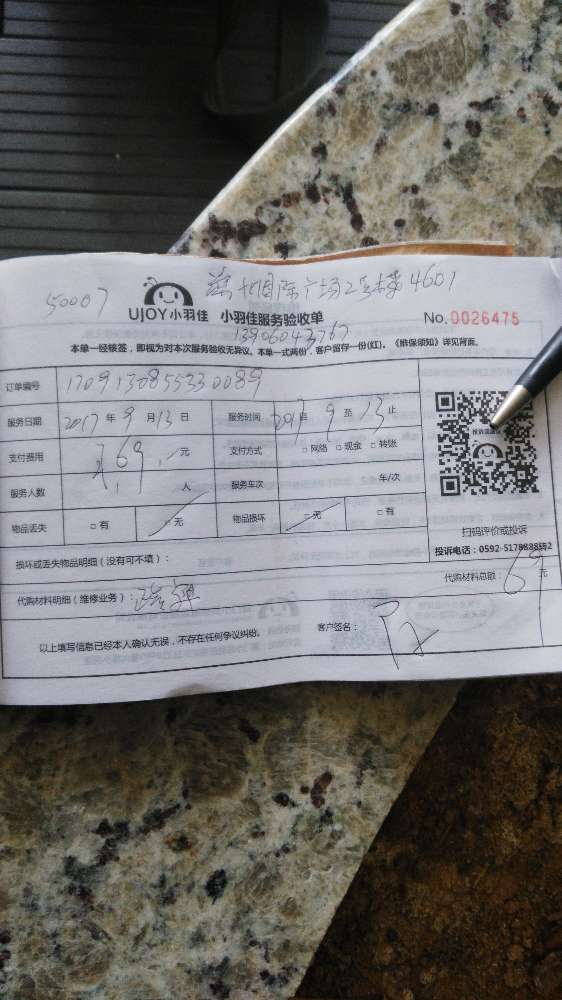 50007
国际广场2号楼4601
UJOY小羽佳 小羽佳服务验收单 No.0026475
13906043767
本单一经核签，即视为对本次服务验收无异议。本单一式两份，客户留存一份(红)。《维保须知》详见背面。
订单编号 1709130855330089
服务日期 2017年9月13日 服务时间 2017 9 至 13 止
支付费用 69.元 支付方式 □网络 □现金 □转账
服务人数 人 服务车次 车/次
物品丢失 □有 □无 物品损坏 □无 □有
扫码评价或投诉
投诉电话：0592-5178888
损坏或丢失物品明细（没有可不填）：
代购材料明细（维修业务）： 代购材料总额：69元
以上填写信息已经本人确认无误，不存在任何争议纠纷。 客户签名：